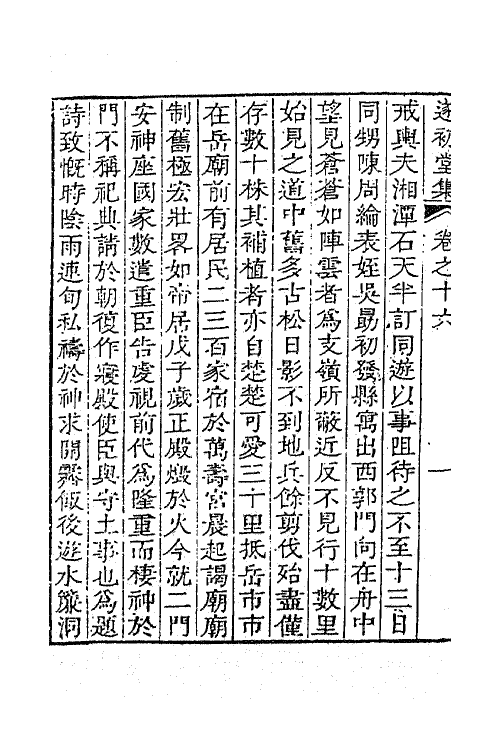 遂初堂集 卷之十六 一
戒與夫湘潭石天半訂同遊以事阻待之不至十三日
同甥陳周綸表姪吳勗初發縣寓出西郭門向在舟中
望見蒼蒼如陣雲者為支嶺所蔽近反不見行十數里
始見之道中舊多古松日影不到地兵餘剪伐殆盡僅
存數十株其補植者亦自楚楚可愛三十里抵岳市市
在岳廟前有居民二三百家宿於萬壽宮晨起謁廟廟
制舊極宏壯畧如帝居戊子歲正殿燬於火今就二門
安神座國家數遣重臣告虔視前代為隆重而棲神於
門不稱祀典請於朝復作寢殿使臣與守土事也為題
詩致慨時陰雨連旬私禱於神求開霽飯後遊水簾洞